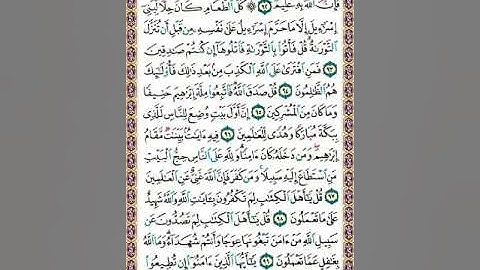 فَإِنَّ ٱللَّهَ بِهِۦ عَلِيمٌ ٩٢ ۞ كُلُّ ٱلطَّعَامِ كَانَ حِلًّا لِّبَنِىٓ
إِسْرَٰٓءِيلَ إِلَّا مَا حَرَّمَ إِسْرَٰٓءِيلُ عَلَىٰ نَفْسِهِۦ مِن قَبْلِ أَن تُنَزَّلَ
ٱلتَّوْرَىٰةُ ۗ قُلْ فَأْتُوا۟ بِٱلتَّوْرَىٰةِ فَٱتْلُوهَآ إِن كُنتُمْ صَٰدِقِينَ
٩٣ فَمَنِ ٱفْتَرَىٰ عَلَى ٱللَّهِ ٱلْكَذِبَ مِنۢ بَعْدِ ذَٰلِكَ فَأُو۟لَٰٓئِكَ
هُمُ ٱلظَّٰلِمُونَ ٩٤ قُلْ صَدَقَ ٱللَّهُ ۗ فَٱتَّبِعُوا۟ مِلَّةَ إِبْرَٰهِيمَ حَنِيفًا
وَمَا كَانَ مِنَ ٱلْمُشْرِكِينَ ٩٥ إِنَّ أَوَّلَ بَيْتٍ وُضِعَ لِلنَّاسِ لَلَّذِى
بِبَكَّةَ مُبَارَكًا وَهُدًى لِّلْعَٰلَمِينَ ٩٦ فِيهِ ءَايَٰتٌۢ بَيِّنَٰتٌ مَّقَامُ
إِبْرَٰهِيمَ ۖ وَمَن دَخَلَهُۥ كَانَ ءَامِنًا ۗ وَلِلَّهِ عَلَى ٱلنَّاسِ حِجُّ ٱلْبَيْتِ
مَنِ ٱسْتَطَاعَ إِلَيْهِ سَبِيلًا ۚ وَمَن كَفَرَ فَإِنَّ ٱللَّهَ غَنِىٌّ عَنِ ٱلْعَٰلَمِينَ
٩٧ قُلْ يَٰٓأَهْلَ ٱلْكِتَٰبِ لِمَ تَكْفُرُونَ بِـَٔايَٰتِ ٱللَّهِ وَٱللَّهُ شَهِيدٌ
عَلَىٰ مَا تَعْمَلُونَ ٩٨ قُلْ يَٰٓأَهْلَ ٱلْكِتَٰبِ لِمَ تَصُدُّونَ عَن
سَبِيلِ ٱللَّهِ مَنْ ءَامَنَ تَبْغُونَهَا عِوَجًا وَأَنتُمْ شُهَدَآءُ ۗ وَمَا ٱللَّهُ
بِغَٰفِلٍ عَمَّا تَعْمَلُونَ ٩٩ يَٰٓأَيُّهَا ٱلَّذِينَ ءَامَنُوٓا۟ إِن تُطِيعُوا۟